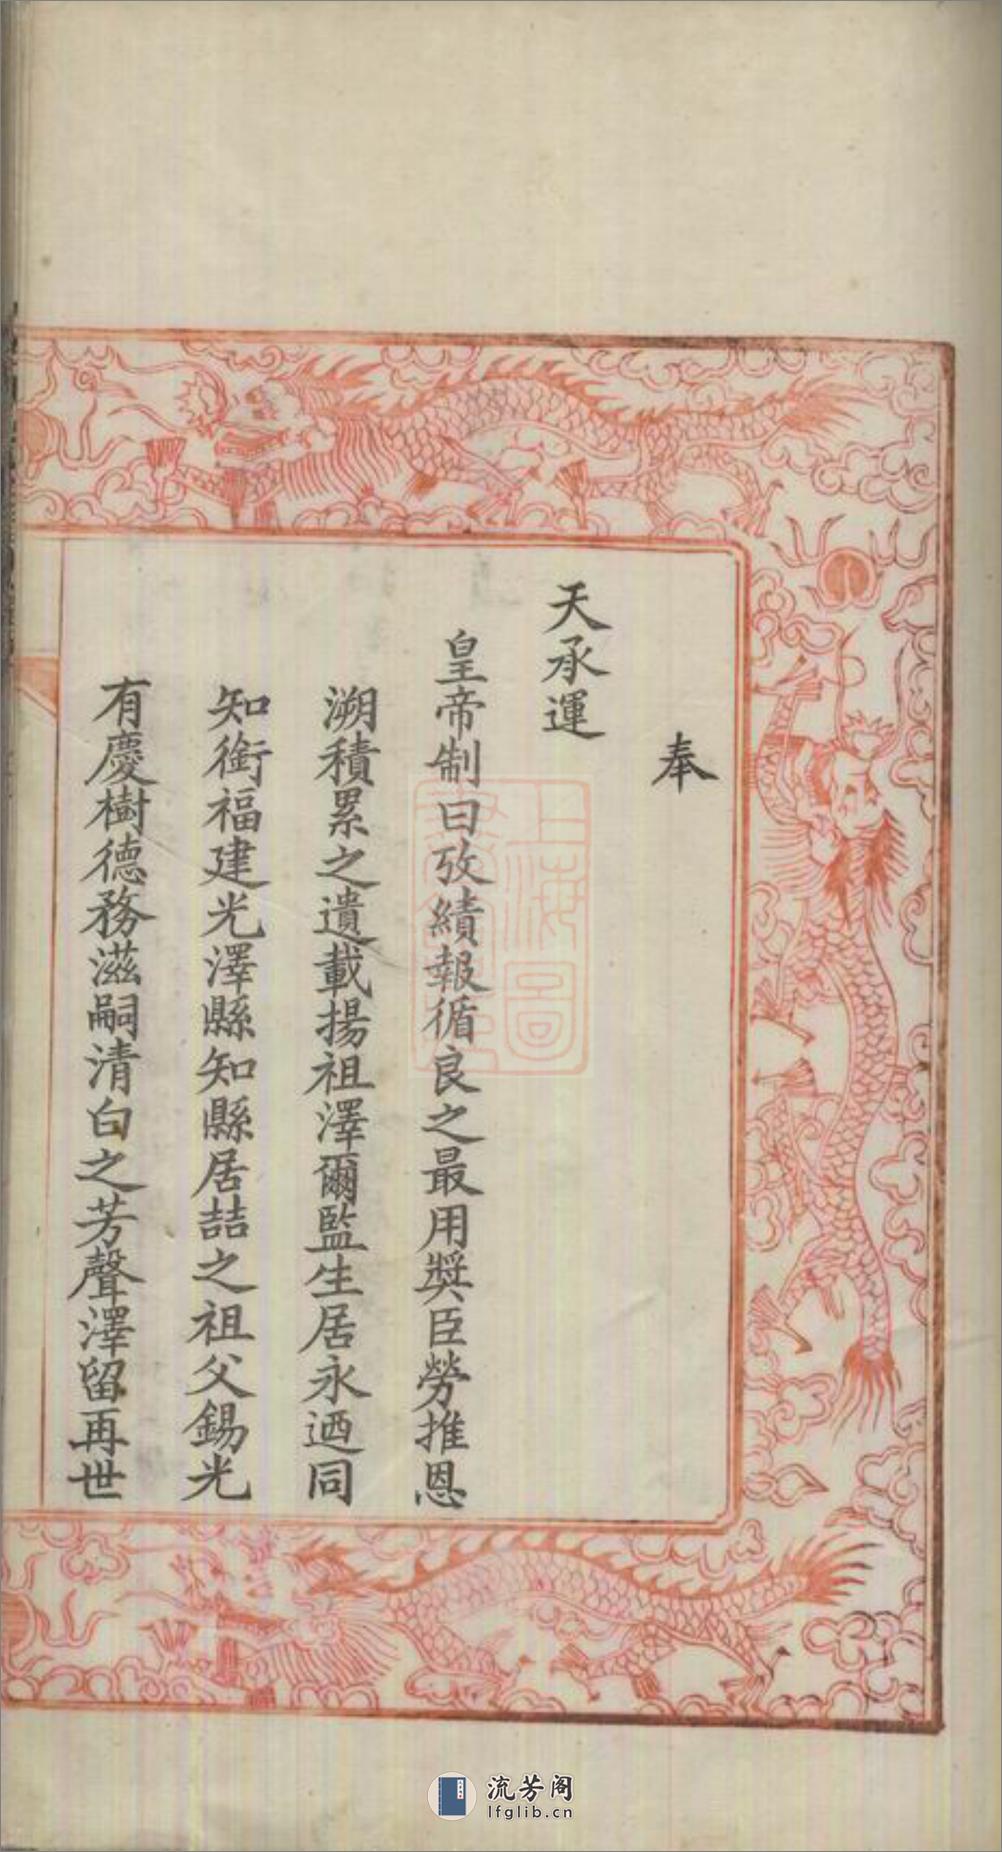 奉
天承運
皇帝制曰攷績報循良之最用獎臣勞推恩
溯積累之遺載揚祖澤爾監生居永迺同
知銜福建光澤縣知縣居喆之祖父錫光
有慶樹德務滋嗣清白之芳聲澤留再世
上海圖
書館藏
流芳阁
lfglib.cn